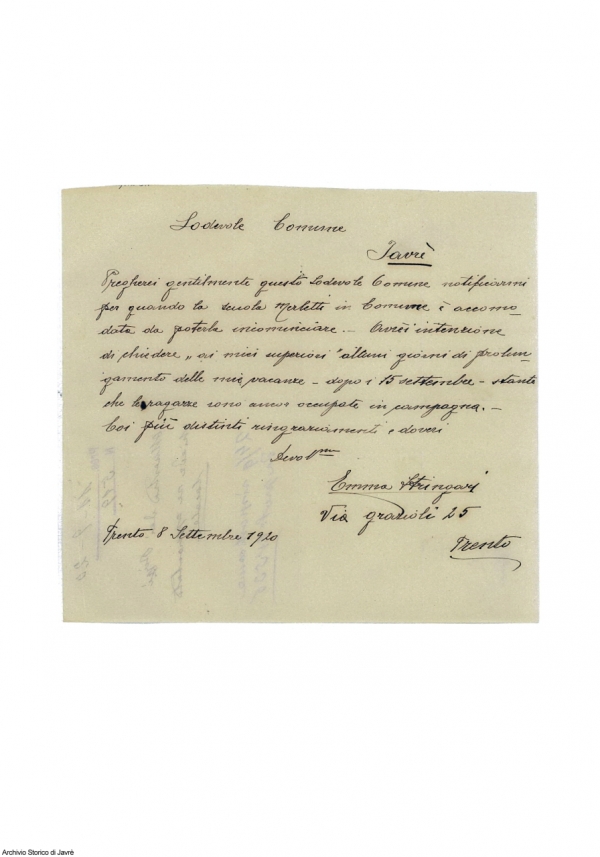 Lodevole Comune
Javrè
Pregherei gentilmente questo Lodevole Comune notificarmi
per quando la scuola Merletti in Comune è accomo-
data da poterla incominciare. - Avrei intenzione
di chiedere „ai miei superiori" alcuni giorni di prolun-
gamento delle mie vacanze - dopo i 15 settembre - stante
che le ragazze sono ancor occupate in campagna. -
Coi più distinti ringraziamenti e doveri
Emma Stringari
Via grazioli 25
Trento 8 Settembre 1920
Trento
Archivio Storico di Javrè